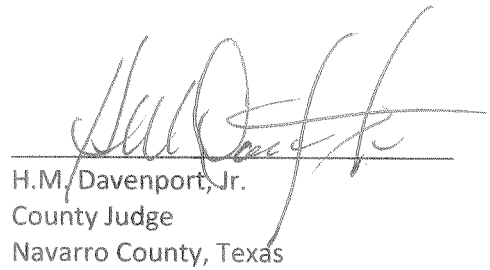 H.M. Davenport, Jr.
County Judge
Navarro County, Texas